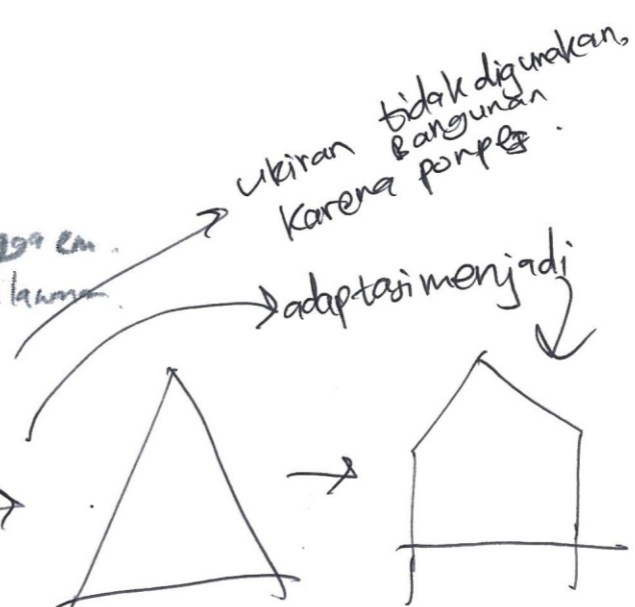 ukiran tidak digunakan,
Karena Bangunan
ponpes.
adaptasi menjadi